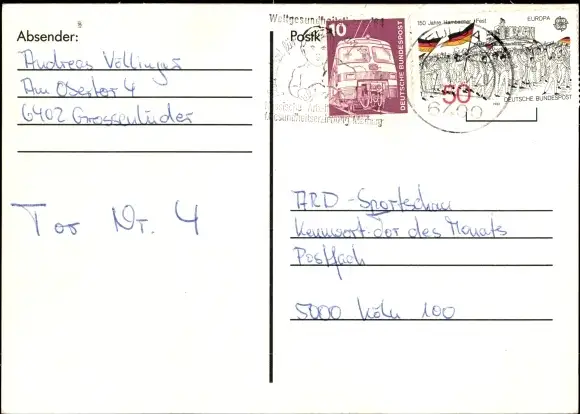 Absender:
Andreas Völlinger
Am Obertor 4
6402 Grossenlüder
Tor Nr. 4
Postk
10
DEUTSCHE BUNDESPOST
150 Jahre Hambacher Fest
EUROPA
50
DEUTSCHE BUNDESPOST
FULDA
6400
ARD-Sportschau
Kennwort: Tor des Monats
Postfach
5000 Köln 100